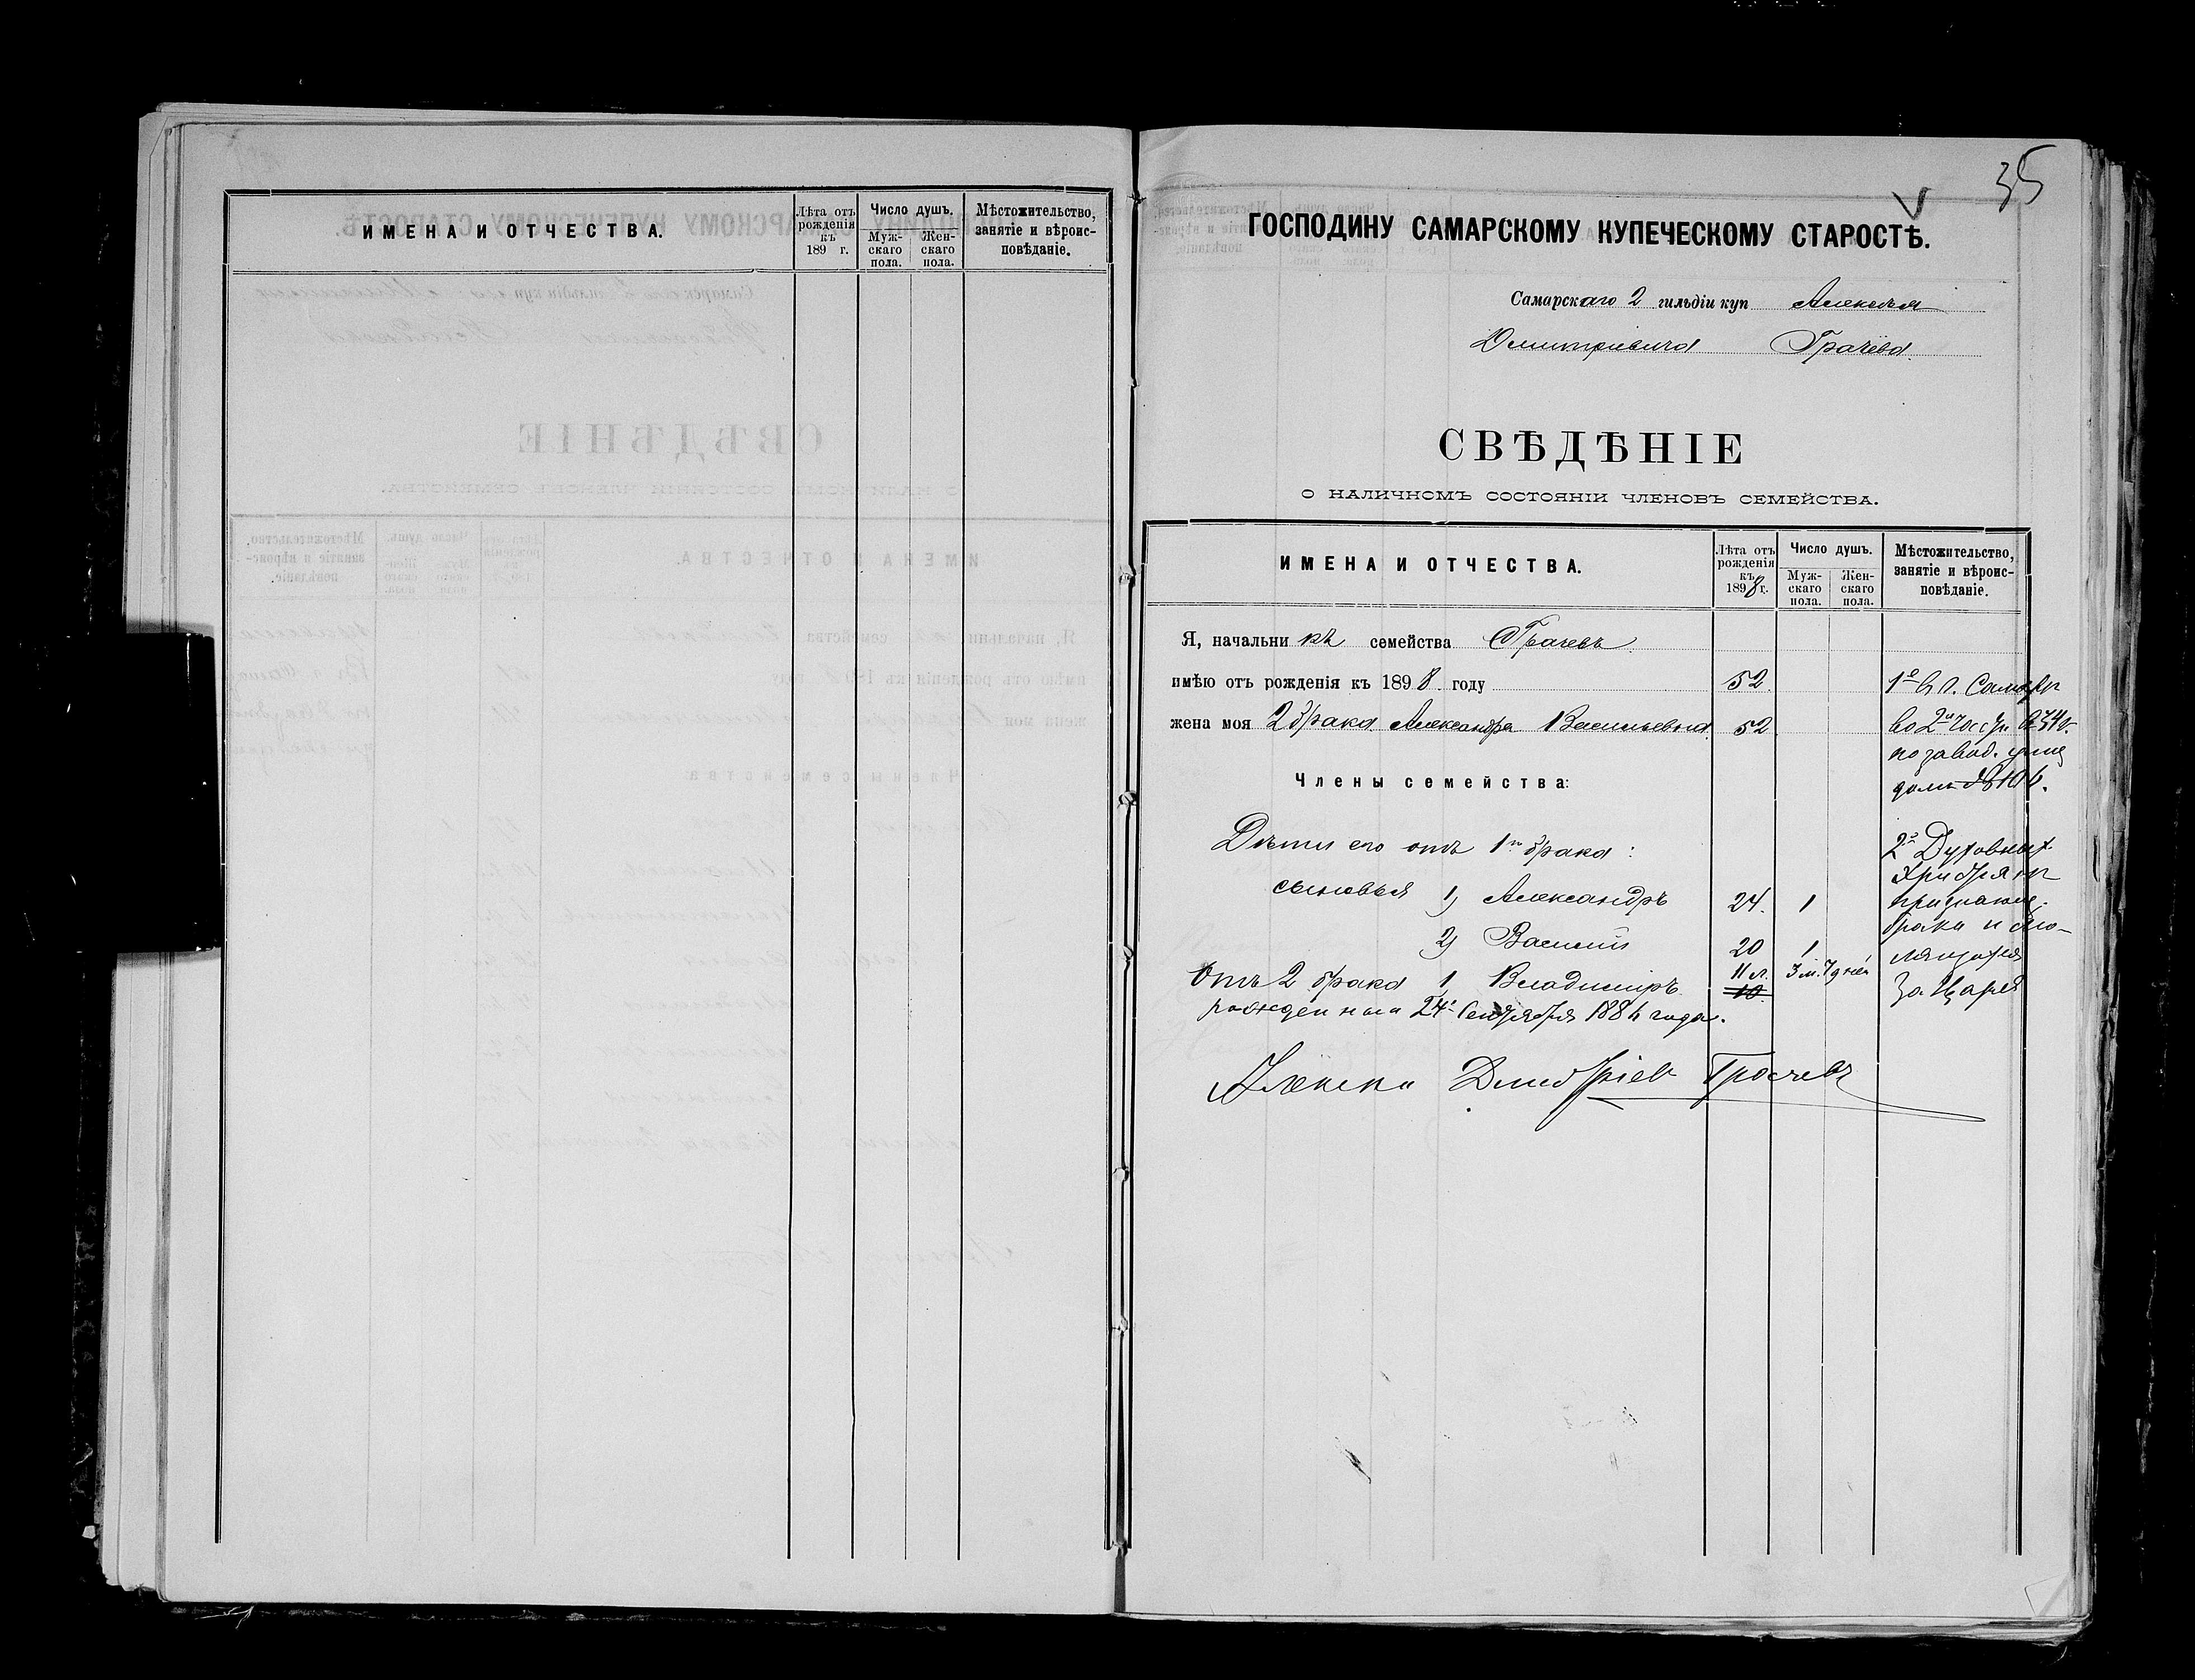 ИМЕНА И ОТЧЕСТВА.
Лѣта отъ рожденія къ 189 г.
Число душъ.
Мужскаго пола.
Женскаго пола.
Мѣстожительство, занятіе и вѣроисповѣданіе.
35
ГОСПОДИНУ САМАРСКОМУ КУПЕЧЕСКОМУ СТАРОСТѢ.
Самарскаго 2 гильдіи куп Алексѣя
Димитріевича Грачёва.
СВѢДѢНІЕ
О НАЛИЧНОМЪ СОСТОЯНІИ ЧЛЕНОВЪ СЕМЕЙСТВА.
ИМЕНА И ОТЧЕСТВА.
Лѣта отъ рожденія къ 1898 г.
Число душъ.
Мужскаго пола.
Женскаго пола.
Мѣстожительство, занятіе и вѣроисповѣданіе.
Я, начальникъ семейства Грачевъ.
имѣю отъ рожденія къ 1898 году 52.
жена моя 2 брака Александра Васильевна 52
Члены семейства:
Дѣти его отъ 1го брака:
сыновья 1) Александръ 24. 1
2) Василій 20 1
Отъ 2 брака 1, Владиміръ 11 л. 3 м. 7 дней
10
рожден 24го Сентября 1886 года.
1е в г. Самарѣ
во 2й части
по завод. улиц
домъ № 106.
2е Духовныхъ
Христіянъ
признающ.
браки и мо-
лящихся
за Царя
Алексѣй Дмитріев Грачевъ